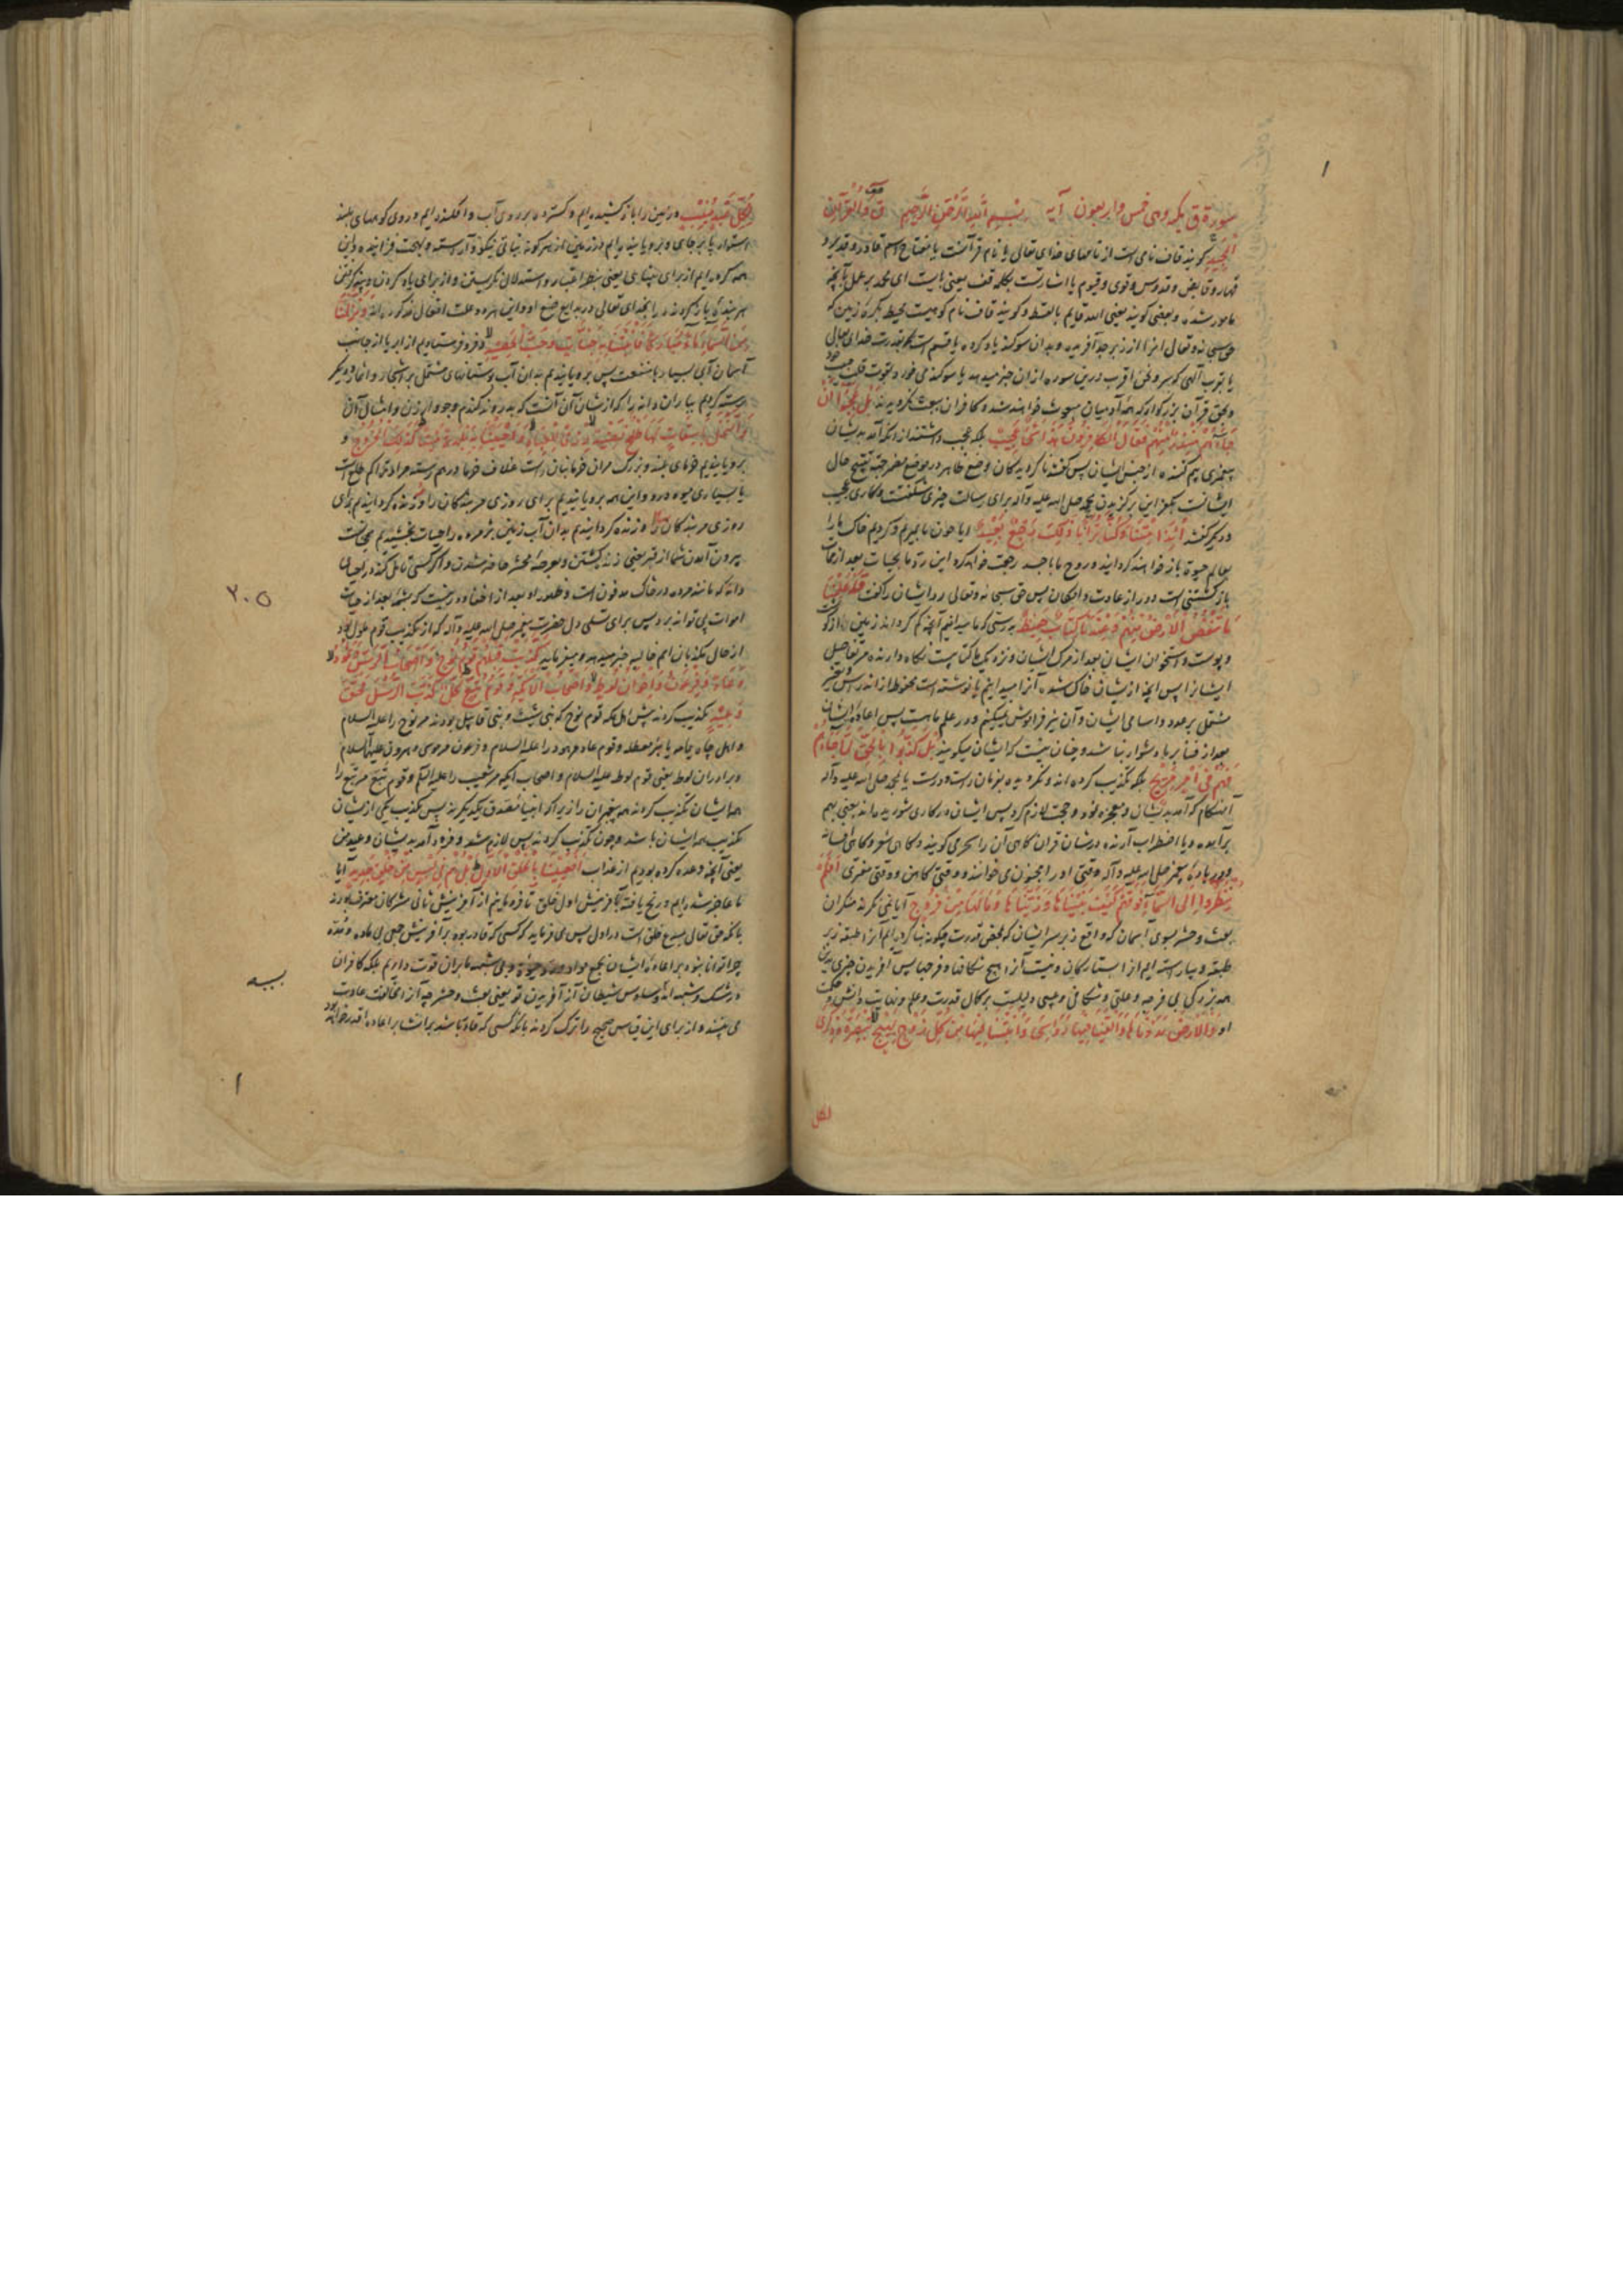 سورة ق مکیه وهی خمس واربعون آیة بسم الله الرحمن الرحیم ق والقرآن
المجید کویند قاف نامی است از نامهای خدای تعالی یا نام قرآنست یا مفتاح اسم قادر و قدیر و
قهار وقابض وقدوس وقوی وقیوم یا اشارتست بکلمه قف یعنی بایست ای محمد بر عمل بآنچه
مامور شده وبعضی کویند یعنی الله قایم بالقسط وکویند قاف نام کوهیست محیط بکره زمین که
حق سبحانه وتعالی از زبرجد آفریده وبدان سوکند یاد کرده یا قسم است
ونحن اقرب درین سوره ازان خبر میدهد یا سوکند می خورد بقوت قلب حبیب خود
وبحق قرآن بزرکوار که همه آدمیان مبعوث خواهند شد وکافران ببعث نکرویدند بل عجبوا ان
جاءهم منذر منهم فقال الکافرون هذا شیء عجیب بلکه عجب داشتند از آنکه آمد بدیشان
پیغمبری بیم کننده از جنس ایشان پس کفتند ناکرویدکان وضع ظاهر در موضع مضمر جهة تقبیح حال
ایشانست این برکزیدن محمد صلی الله علیه وآله برای رسالت چیزی شکفتست وکاری عجب
ودیکر کفتند ائذا متنا وکنا ترابا ذلک رجع بعید ایا چون ما بمیریم وکردیم خاک ما را
بعالم حیوة باز خواهند کردانید وروح ما با جسد رجعت خواهد کرد این رد ما بحیات بعد از ممات
بازکشتنی است دور از عادت وامکان پس حق سبحانه وتعالی رد ایشان را کفت قد علمنا
ما تنقص الارض منهم وعندنا کتاب حفیظ بدرستی که ما میدانیم آنچه کم کرداند زمین از کوشت
وپوست واستخوان ایشان بعد از مرک ایشان ونزدیک ما کتابیست نکاه دارنده مر تفاصیل
ایشانرا پس آنچه از ایشان خاک شود آنرا میدانیم یا نوشته است محفوظ از اندراس وتغییر
مشتمل بر عدد واسامی ایشان وآن نیز فراموش نمیکنیم ودر علم ما هست پس اعاده ایشان
بعد از فنا بر ما دشوار نباشد وچنان نیست که ایشان میکویند بل کذبوا بالحق لما جاءهم
فهم فی امر مریج بلکه تکذیب کرده اند ونکرویده بفرمان راست ودرست یا بمحمد صلی الله علیه وآله
آنهنکام که آمد بدیشان ومعجزه نمود وحجت لازم کرد پس ایشان در کاری شوریده اند یعنی بهم
برآمده ویا اضطراب آرنده در شان قرآن کاهی آن را سحر می کویند وکاهی شعر وکاهی افسانه
ودر باره پیغمبر صلی الله علیه وآله وقتی او را مجنون می خوانند ووقتی کاهن ووقتی مفتری افلم
ینظروا الی السماء فوقهم کیف بنیناها وزیناها وما لها من فروج آیا نمی نکرند منکران
بعث وحشر بسوی آسمان که واقع زبر سر ایشان که بمحض قدرت چکونه بنا کرده ایم آنرا طبقه زبر
طبقه وبیاراسته ایم آنرا بستارکان ونیست آنرا هیچ شکافها وفرجها پس آفریدن چیزی بدین
همه بزرکی بی فرجه وخللی وشکافی وعیبی دلیلیست بر کمال قدرت وعلم ونهایت دانش وحکمت
او والارض مددناها والقینا فیها رواسی وانبتنا فیها من کل زوج بهیج تبصرة وذکری
لکل
لکل عبد منیب وزمین را باز کشیده ایم وکسترده بر روی آب وافکنده ایم در وی کوههای بلند
استوار پا بر جای وبرویانیده ایم در زمین از هر کونه نباتی نیکو وآراسته وبهجت فزاینده واین
همه کرده ایم از برای بینایی یعنی بنظر اعتبار واستدلال نکریستن واز برای یاد کردن وپند کرفتن
هر بنده بازکردنده را بخدای تعالی در بدایع صنع او واین هر دو علت افعال مذکوره اند ونزلنا
من السماء ماء مبارکا فانبتنا به جنات وحب الحصید وفرو فرستادیم از ابر یا از جانب
آسمان آبی بسیار با منفعت پس برویانیدیم بدان آب بوستانهای مشتمل بر اشجار واثمار ودیکر
باران دانه را که از شان آن آنست که بدروند کندم وجو وارزن وامثال آن
والنخل باسقات لها طلع نضید رزقا للعباد واحیینا به بلدة میتا کذلک الخروج و
برویانیدیم خرمای بلند وبزرک مران خرما بنان راست غلاف خرما در هم رسته مراد تراکم طلع است
یا بسیاری میوه در و واین همه برویانیدیم برای روزی مر بندکان را وزنده کردانیدیم برای
روزی مر بندکان را وزنده کردانیدیم بدان آب زمین پژمرده را حیات بخشیدیم همچنانست
بیرون آمدن شما از قبر یعنی زنده کشتن وبعرصه محشر حاضر شدن واکر کسی تامل کند در احیای
دانه که مانند مرده در خاک مدفون است وظهور او بعد از اختفا دور نیست که شمه بعد از حیات
اموات پی تواند برد پس برای تسلی دل حضرت پیغمبر صلی الله علیه وآله که از تکذیب قوم ملول بود
از حال مکذبان امم خالیه خبر میدهد ومیفرماید کذبت قبلهم قوم نوح واصحاب الرس وثمود
وعاد وفرعون واخوان لوط واصحاب الایکة وقوم تبع کل کذب الرسل فحق
وعید تکذیب کردند پیش از اهل مکه قوم نوح که بنی شیث وبنی قابیل بودند مر نوح را علیه السلام
واهل چاه یمامه یا بئر معطله وقوم عاد مر هود را علیه السلام وفرعون مر موسی وهرون علیهما السلام
وبرادران لوط یعنی قوم لوط علیه السلام واصحاب ایکه مر شعیب را علیه السلام وقوم تبع مر تبع را
همه ایشان تکذیب کردند همه پیغمبران را زیرا که انبیا مصدق یکدیکرند پس تکذیب یکی از ایشان
تکذیب همه ایشان باشد وچون تکذیب کردند پس لازم شد وفرود آمد بدیشان وعید من
یعنی آنچه وعده کرده بودیم از عذاب افعیینا بالخلق الاول بل هم فی لبس من خلق جدید آیا
ما عاجز شده ایم ورنج یافته بآفرینش اول خلق تا فرو مانیم از آفرینش ثانی مشرکان معترف بودند
بآنکه حق تعالی مبدع خلق است در اول پس می فرماید که کسی که قادر بود بر آفرینش جمعی بی ماده ومدد
چرا توانا نبود بر اعاده ایشان بجمع مواد ورد حیوة وبی شبهه ما بران قوت داریم بلکه کافران
در شک وشبهه اند ووساوس شیطان از آفریدن نو یعنی بعث وحشر چه آنرا مخالف عادت
می بینند واز برای این قیاس صحیح را ترک کردند با آنکه کسی که قادر باشد بر انشا بر اعاده اقدر خواهد بود
۲۰۵